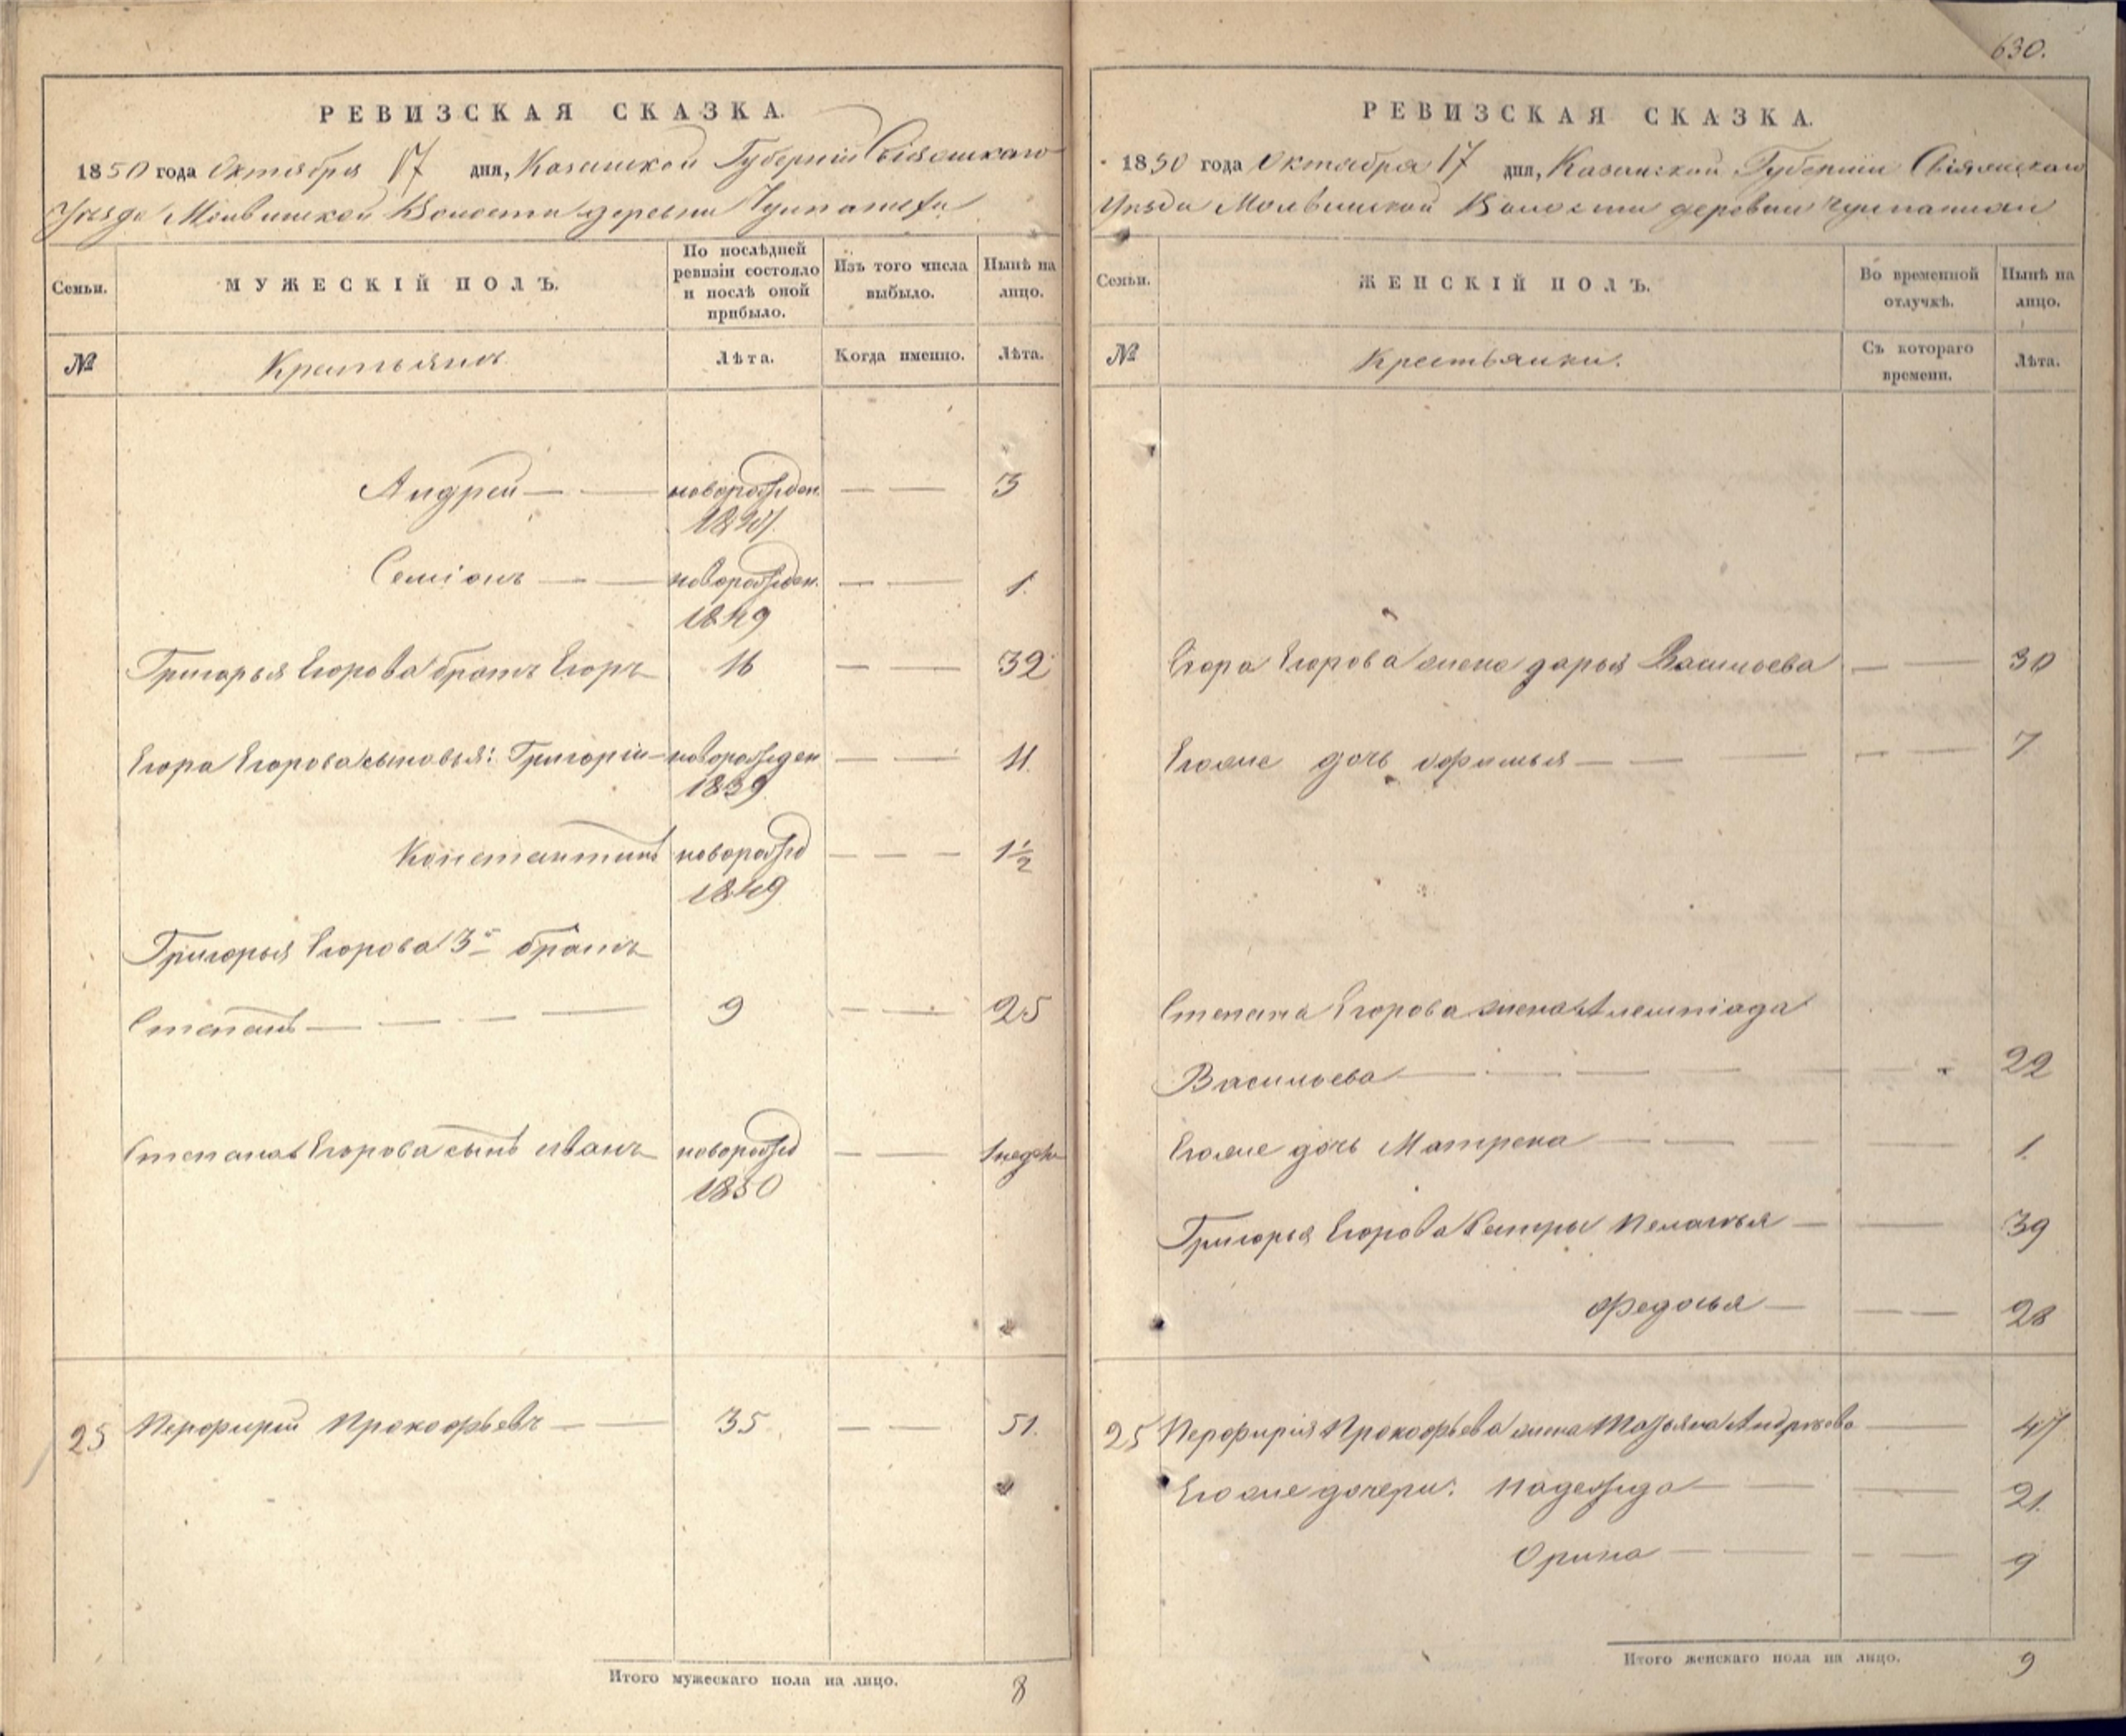 630.
РЕВИЗСКАЯ СКАЗКА.
1850 года Октября 17 дня, Казанской Губерніи Свіяжскаго
Уезда Молвинской Волости деревни
Семьи.
МУЖЕСКІЙ ПОЛЪ.
По послѣдней ревизіи состояло и послѣ оной прибыло.
Изъ того числа выбыло.
Нынѣ на лицо.
№
Крестьянъ
Лѣта.
Когда именно.
Лѣта.
Андрей — — новорожден. — — 3
1847
Семіонъ — — новорожден. — — 1.
1849
Григорья Егорова братъ Егоръ 16 — — 32
Егора Егорова сыновья: Григорій новорожден — — 11.
1839
Константинъ новорожд — — — 1½
1849
Григорья Егорова 3й братъ
Степанъ — — — — 9 — — 25
Степана Егорова сынъ Иванъ новорожд — — 1 недели
1850
25 Перфирій Прокофьевъ — — 35 — — 51.
Итого мужескаго пола на лицо. 8
РЕВИЗСКАЯ СКАЗКА.
1850 года Октября 17 дня, Казанской Губерніи Свіяжскаго
Уезда Молвинской Волости деревни
Семьи.
ЖЕНСКІЙ ПОЛЪ.
Во временной отлучкѣ.
Нынѣ на лицо.
№
Крестьянки.
Съ котораго времени.
Лѣта.
Егора Егорова жена дарья Васильева — — 30
Егоже дочь офимья — — — — — 7
Степана Егорова жена
Васильева — — — — — 22
Егоже дочь Матрена — — — 1.
Григорья Егорова сестры Пелагея — — 39
Федосья — — — 28
25 Перфирія Прокофьева жена Татьяна Андреева — 47
Егоже дочери: Надежда — — — 21.
Орина — — — — 9
Итого женскаго пола на лицо. 9